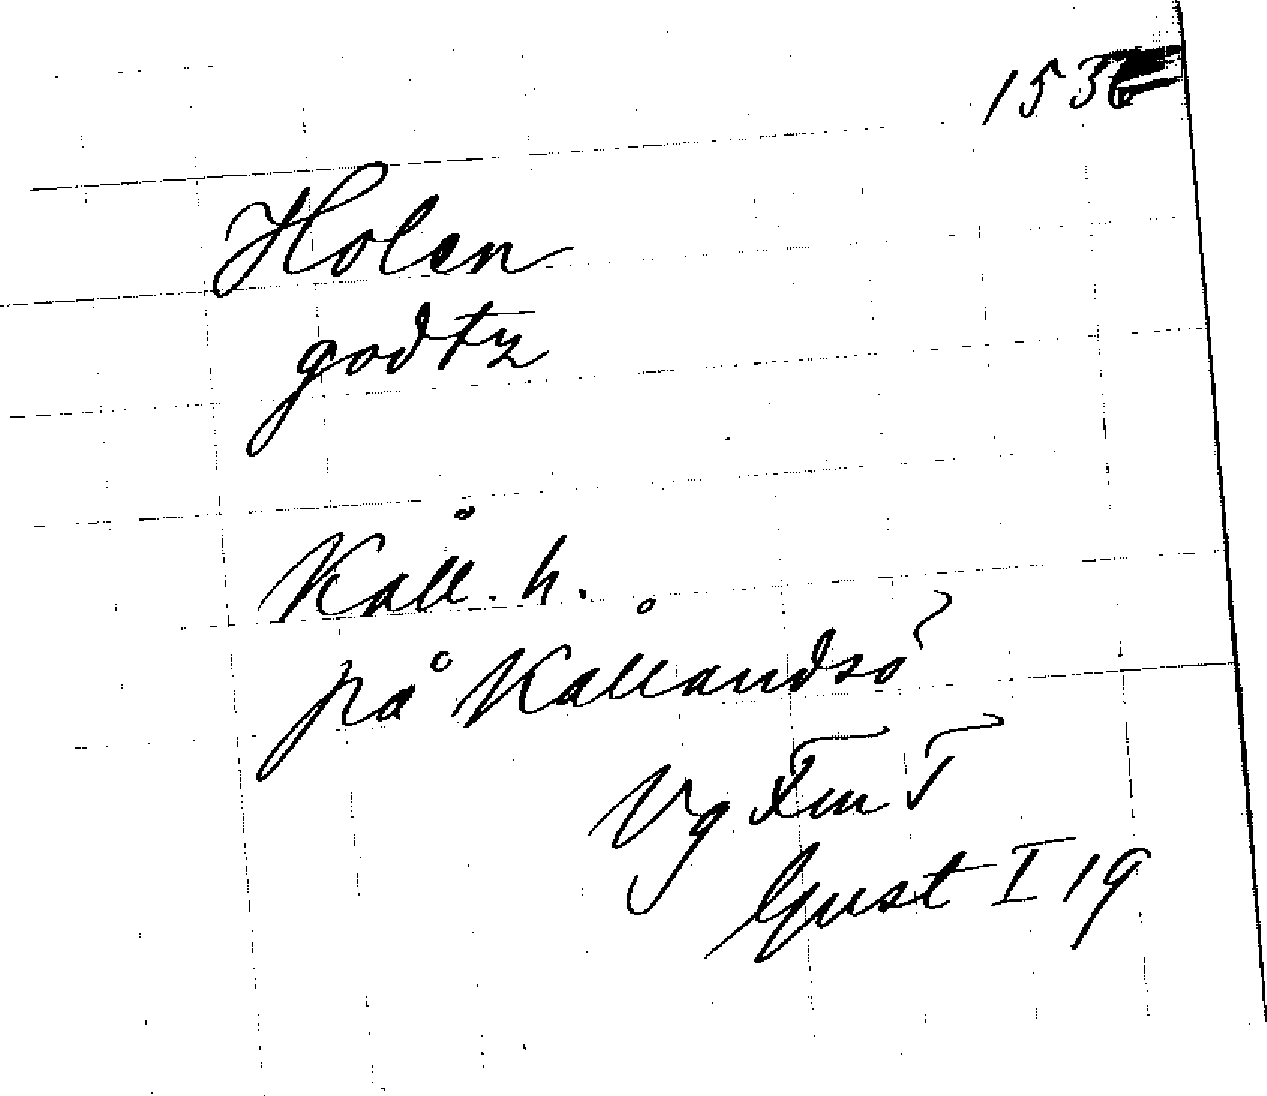 1536
Holen
godtz
Kåll. h.
på Kållandsö
Vg
Gust I 19